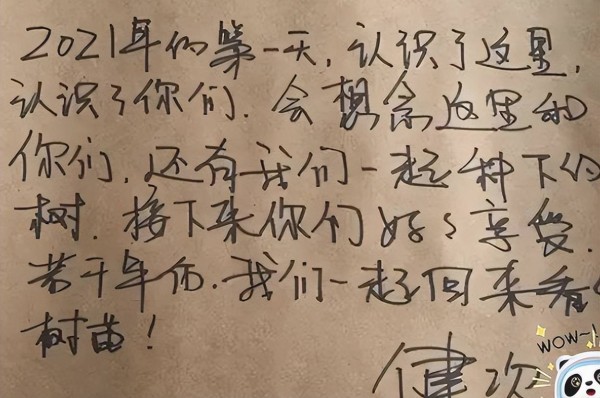 2021年的第一天,认识了这里,
认识了你们.会想念这里和
你们,还有我们一起种下的
树.接下来你们好好享受.
若干年后.我们一起回来看
树苗!
健次
WOW~!